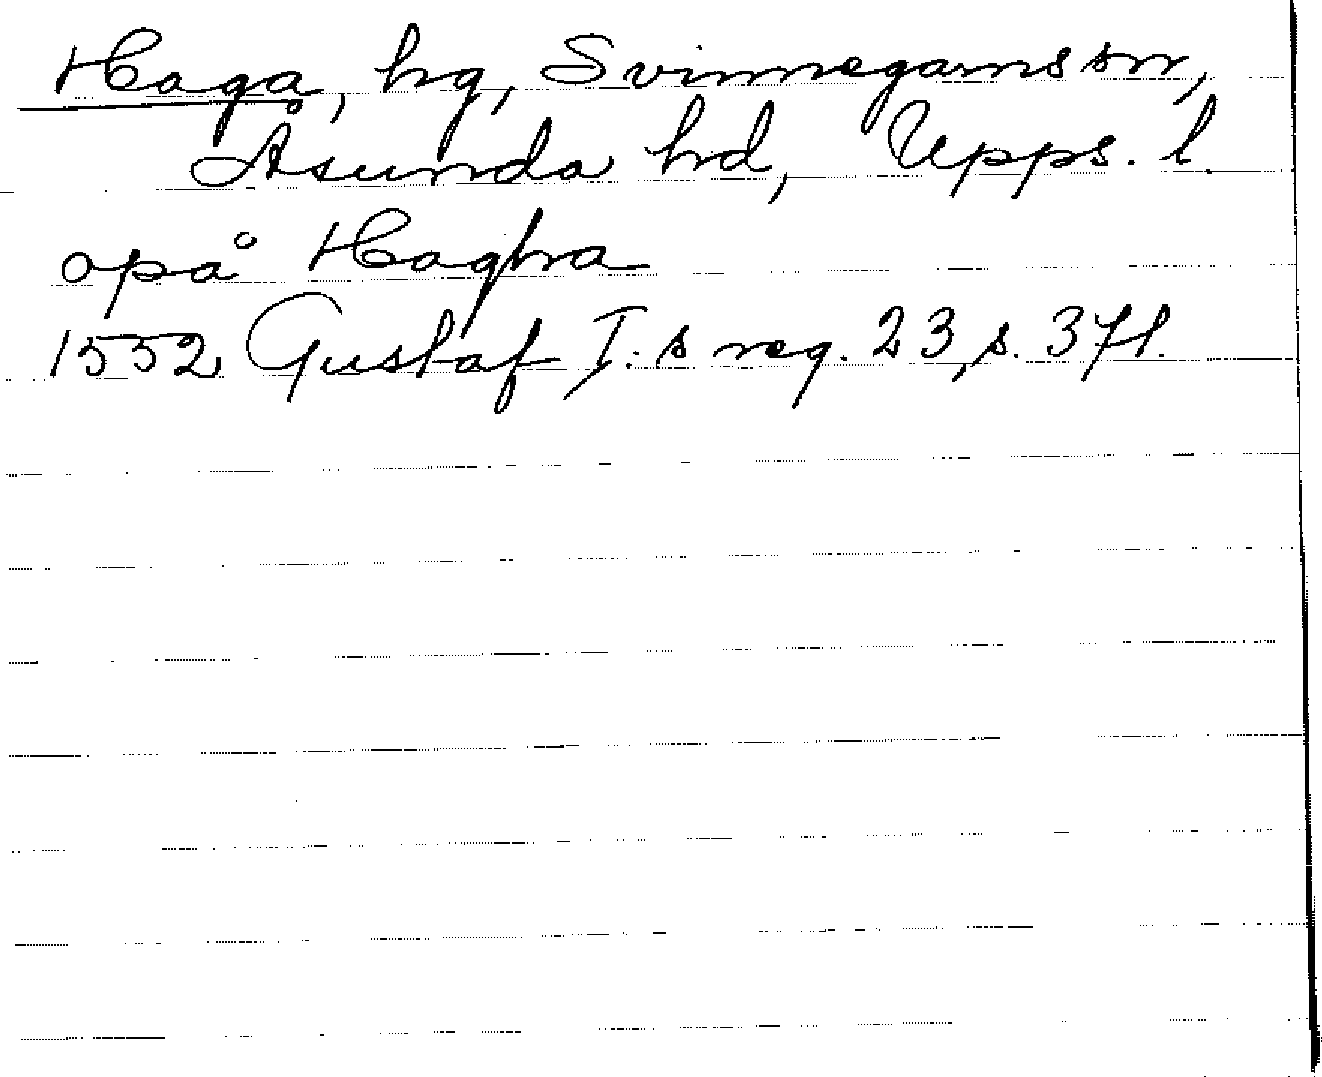 Haga, hg, Svinnegarns sn,
Åsunda hd, Upps. l.
opå Hagha
1552 Gustaf I:s reg. 23, s. 371.